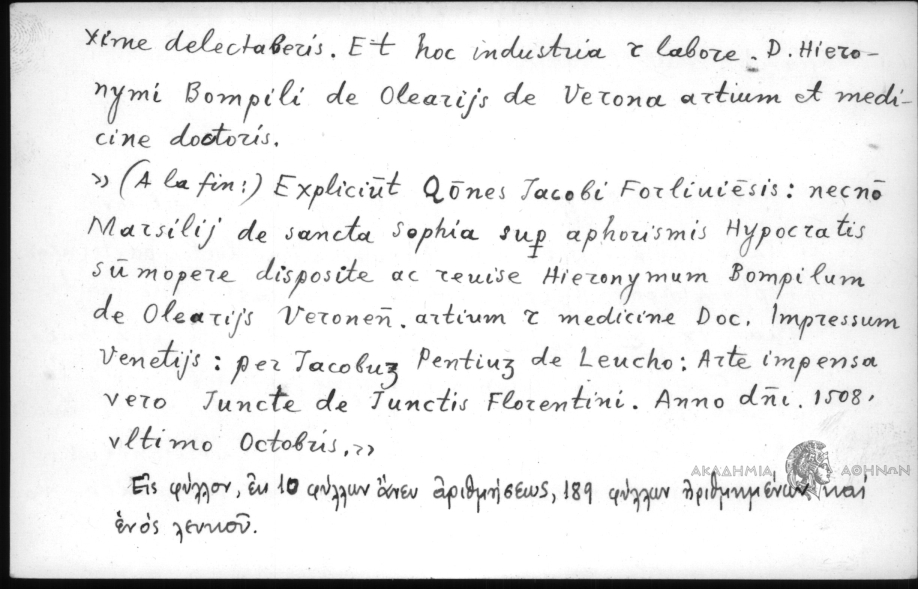 xime delectaberis. Et hoc industria τ labore. D. Hiero-
nymi Bompili de Olearijs de Verona artium et medi-
cine doctoris.
» (A la fin:) Expliciūt Qōnes Jacobi Forliuiēsis: necnō
Marsilij de sancta Sophia suꝑ aphorismis Hypocratis
sūmopere disposite ac reuise Hieronymum Bompilum
de Olearijs Veroneñ. artium τ medicine Doc. Impressum
Venetijs: per Jacobuʒ Pentiuʒ de Leucho: Arte impensa
vero Juncte de Junctis Florentini. Anno dñi. 1508.
vltimo Octobris.»
ΑΚΑΔΗΜΙΑ ΑΘΗΝΩΝ
Εἰς φύλλον, ἐκ 10 φύλλων ἄνευ ἀριθμήσεως, 189 φύλλων ἠριθμημένων καὶ
ἑνὸς λευκοῦ.